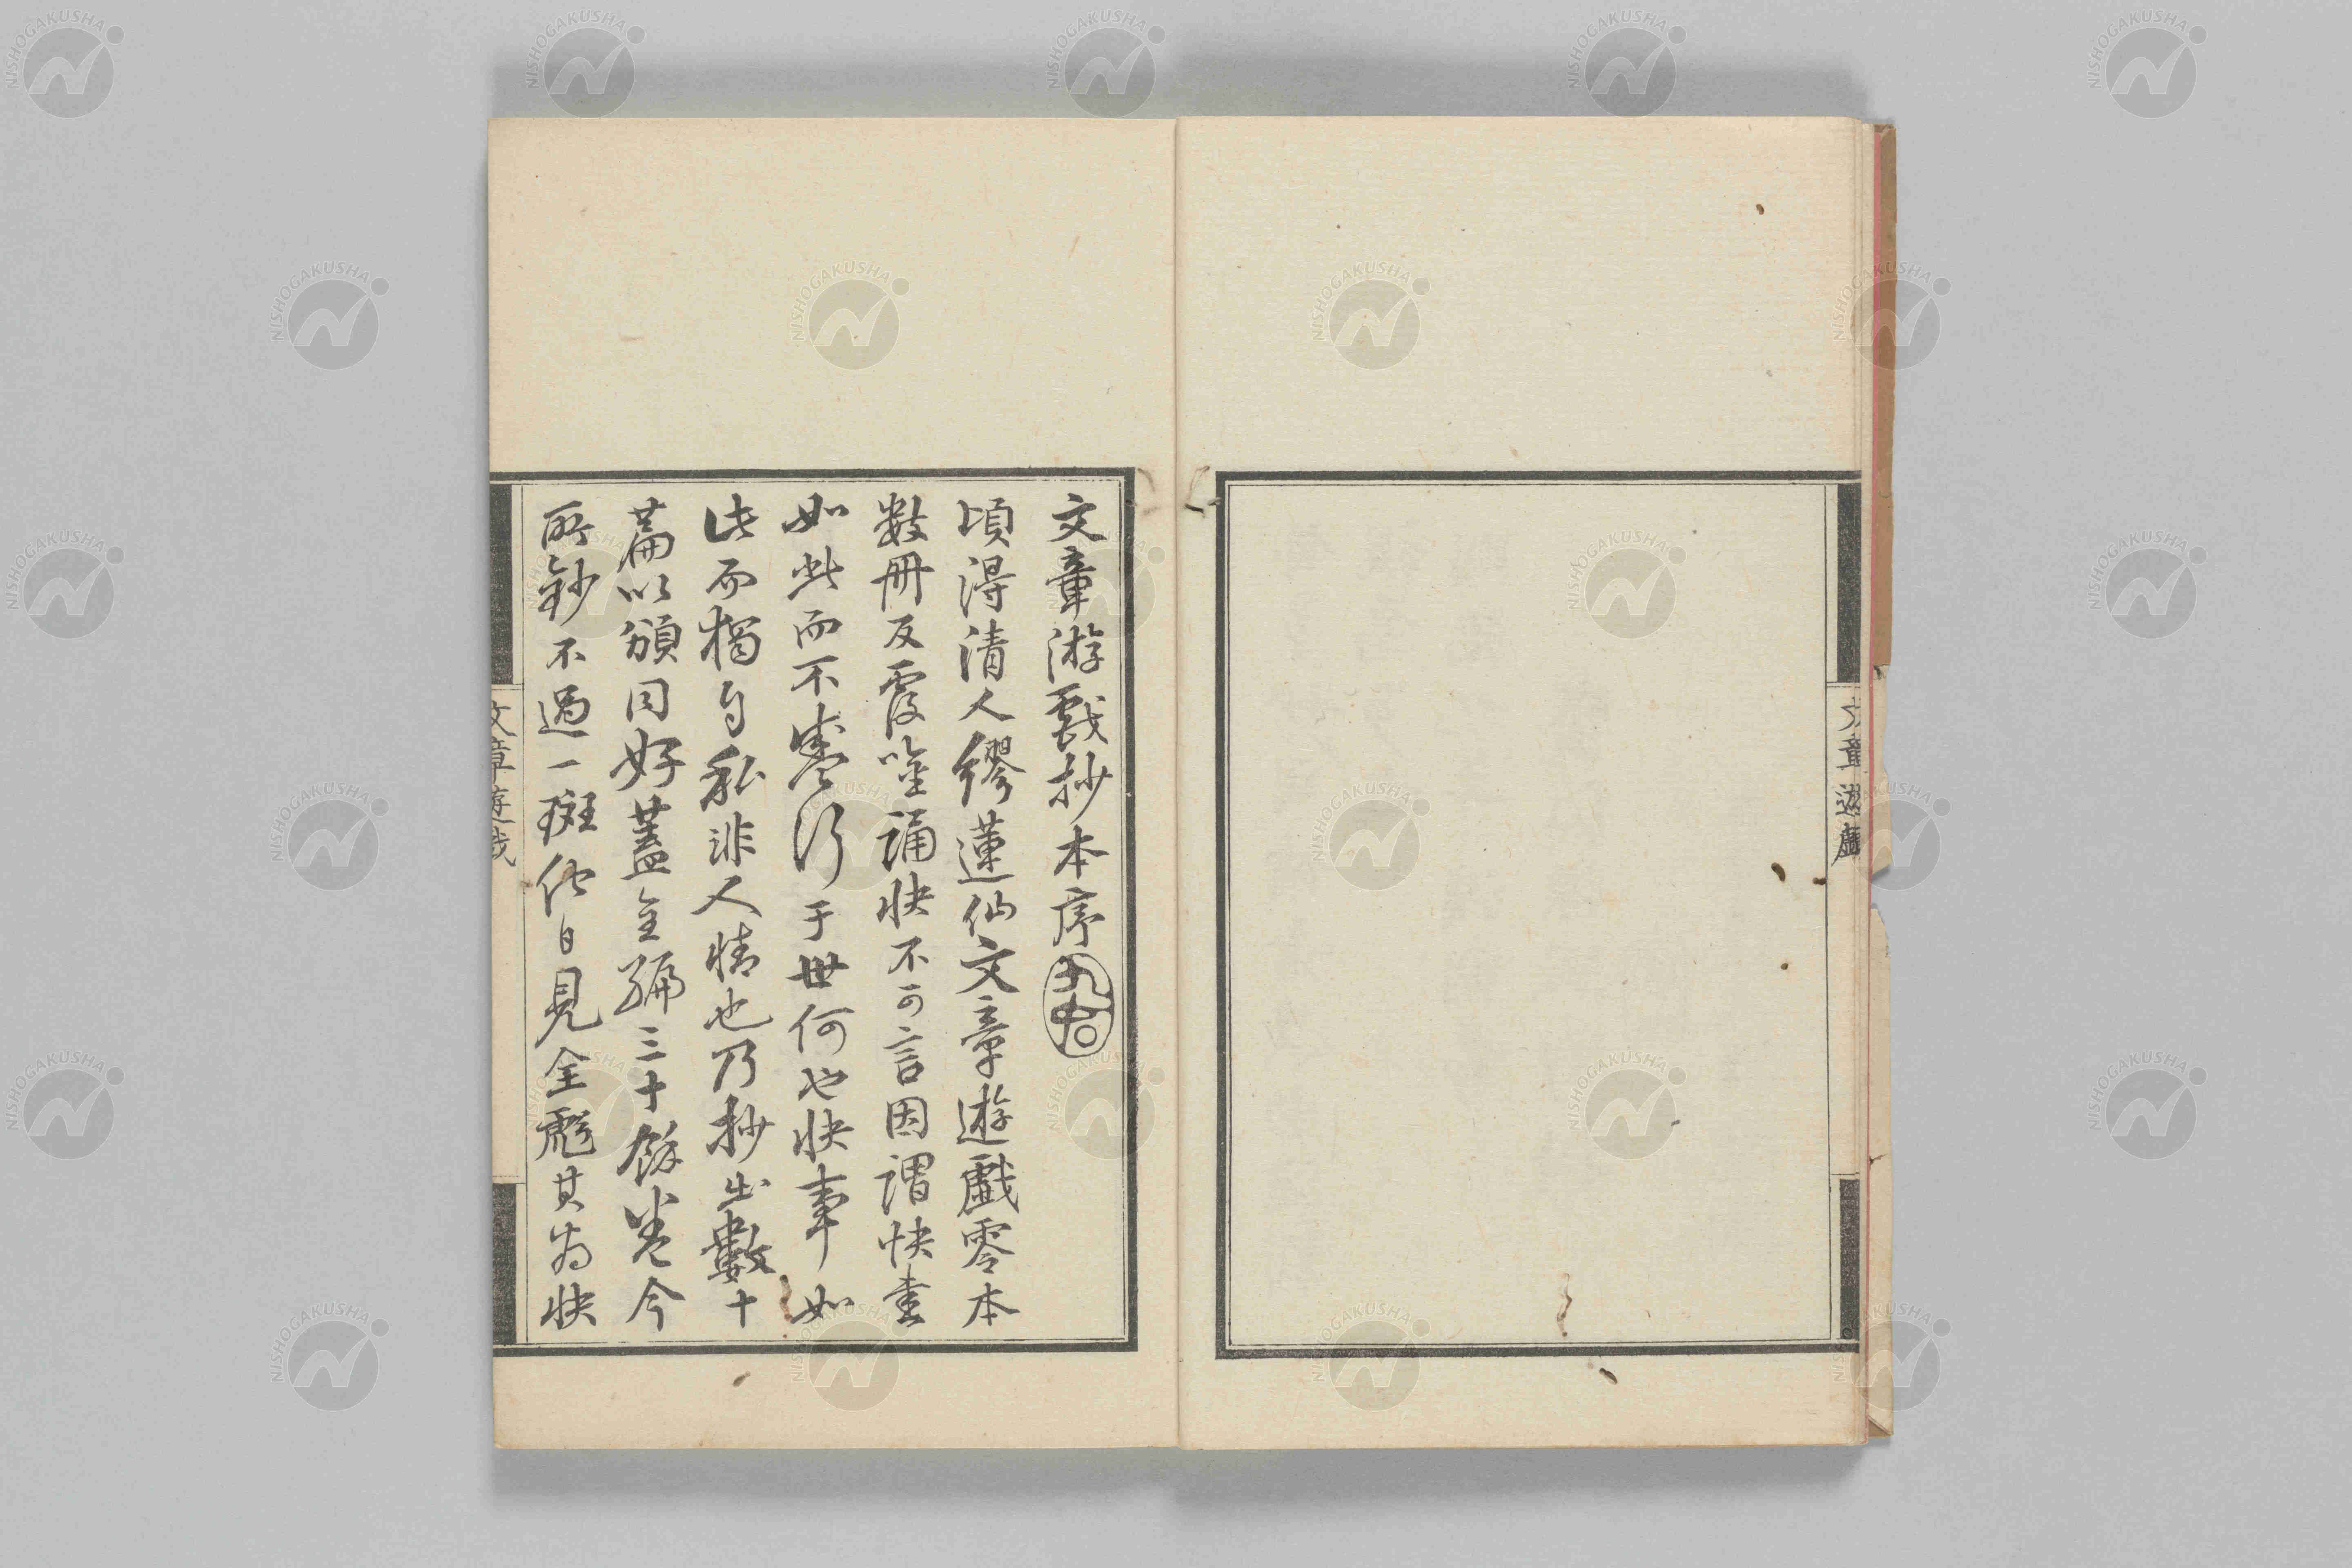 文章游戲抄本序
頃得清人繆蓮仙文章遊戲零本
數冊反覆唫誦快不可言因謂快書
如此而不盛行于世何也快事如
此而獨自私非人情也乃抄出數十
篇以頒同好蓋全編三十餘卷今
所鈔不過一斑他日見全彪其為快
文章遊戲
文章遊戲